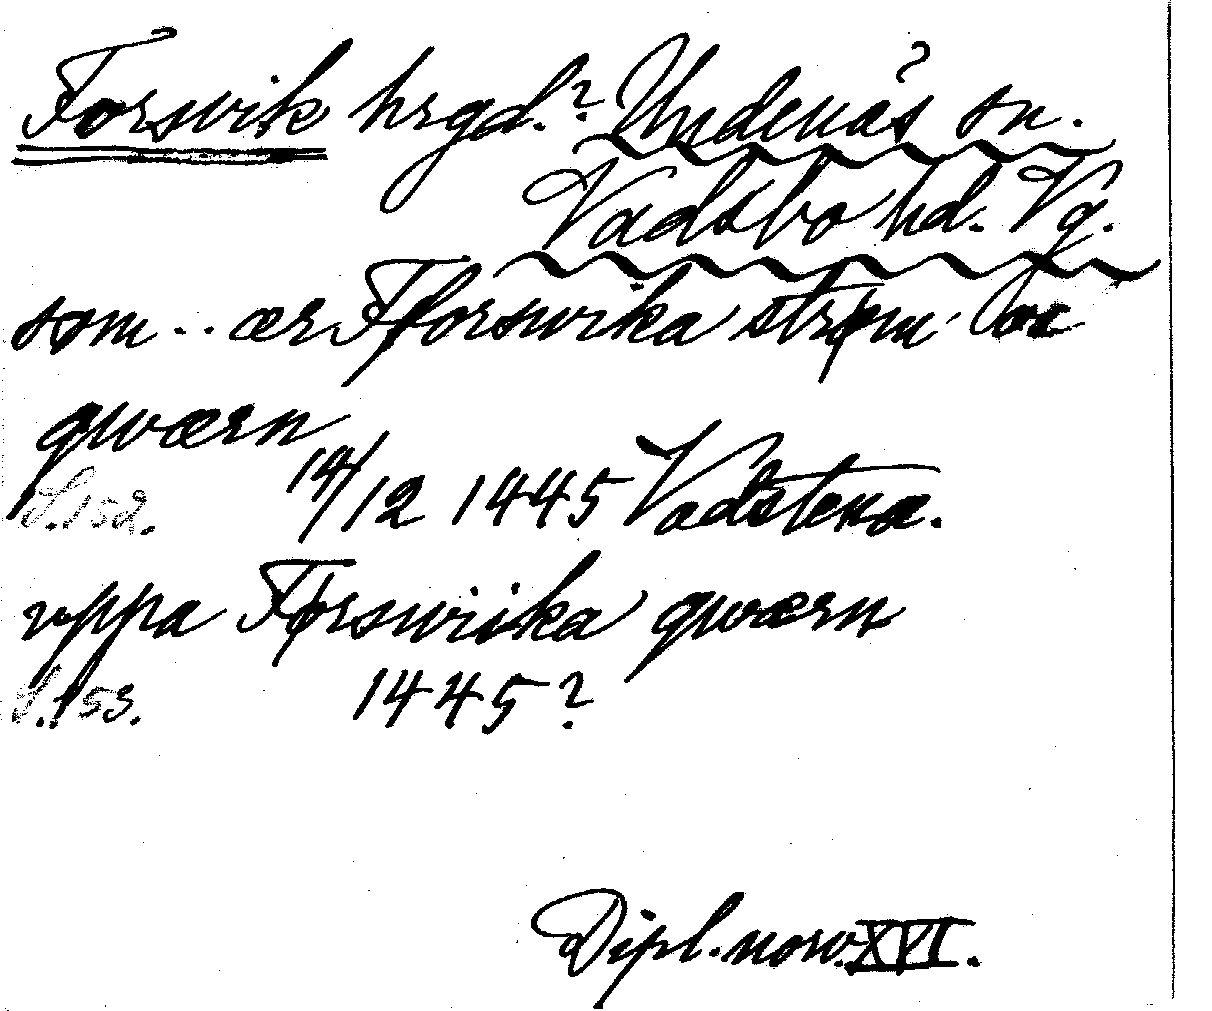 Forsvik hrgd.? Undenäs sn.
Vadsbo hd. Vg.
som .. ær Fforswika strøm oc
qwærn
S. 152. 14/12 1445 Vadstena.
vppa Forswika qwærn
S. 153. 1445?
Dipl. norv. XVI.